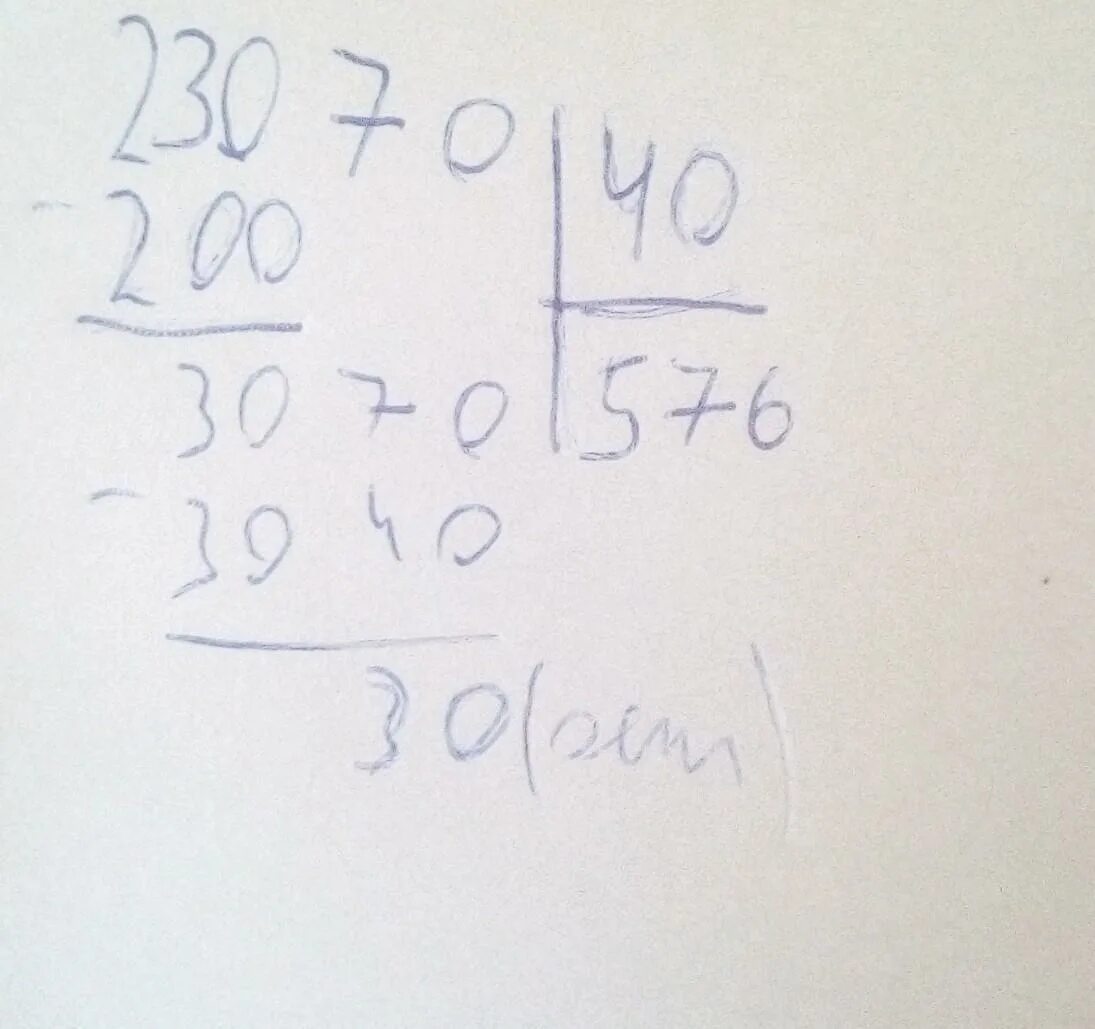 23070 | 40
- 200
3070 | 576
- 3040
30 (ост)